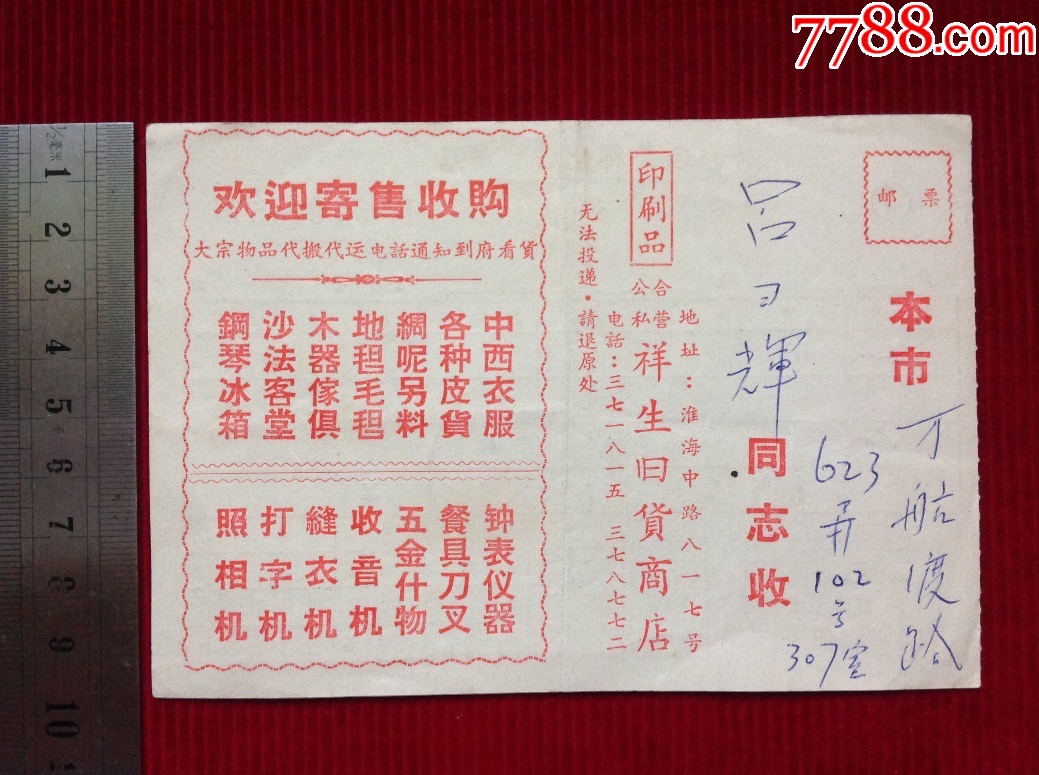 7788.com
邮票
本市
万航渡路
623弄102号
307室
吕
輝
同志收
印刷品
公私合营
祥生旧貨商店
地址：淮海中路八一七号
电話：三七一八一五 三七八七七二
无法投递·請退原处
欢迎寄售收购
大宗物品代搬代运电話通知到府看貨
中西衣服
各种皮貨
綢呢另料
地毯毛毯
木器傢俱
沙法客堂
鋼琴冰箱
钟表仪器
餐具刀叉
五金什物
收音机
縫衣机
打字机
照相机
1/2毫米
1
2
3
4
5
6
7
8
9
10